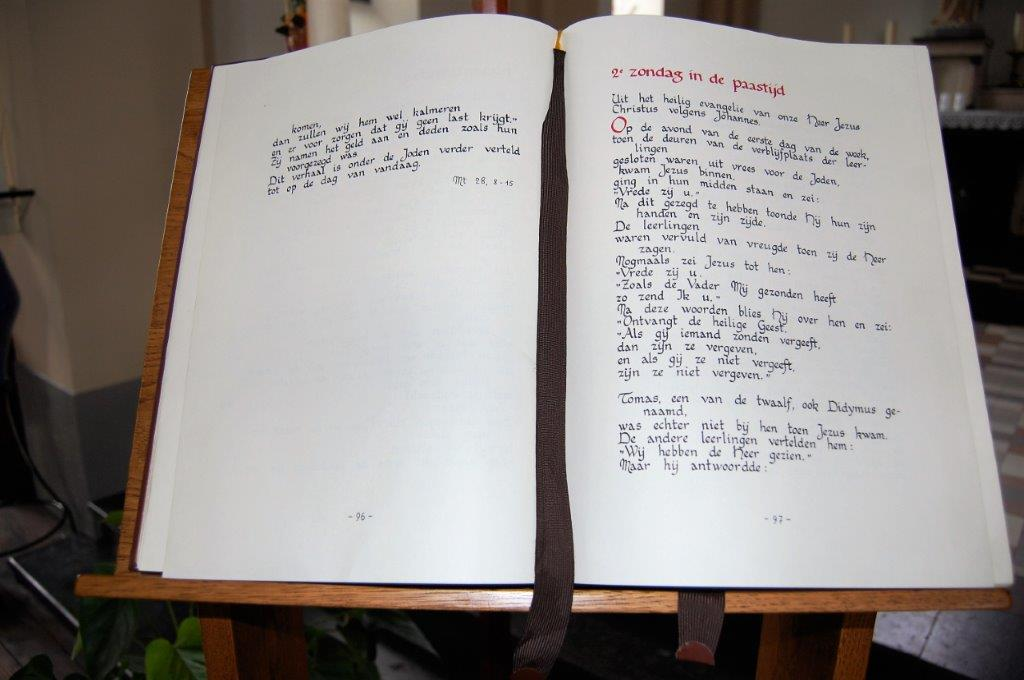 komen,
dan zullen wij hem wel kalmeren
en er voor zorgen dat gij geen last krijgt."
Zij namen het geld aan en deden zoals hun
voorgezegd was.
Dit verhaal is onder de Joden verder verteld
tot op de dag van vandaag.
Mt 28, 8-15
-96-
2e zondag in de paastijd
Uit het heilig evangelie van onze Heer Jezus
Christus volgens Johannes.
Op de avond van de eerste dag van de week,
toen de deuren van de verblijfplaats der leer-
lingen
gesloten waren uit vrees voor de Joden,
kwam Jezus binnen,
ging in hun midden staan en zei:
"Vrede zij u."
Na dit gezegd te hebben toonde Hij hun zijn
handen en zijn zijde.
De leerlingen
waren vervuld van vreugde toen zij de Heer
zagen.
Nogmaals zei Jezus tot hen:
"Vrede zij u.
"Zoals de Vader Mij gezonden heeft
zo zend Ik u."
Na deze woorden blies Hij over hen en zei:
"Ontvangt de heilige Geest.
"Als gij iemand zonden vergeeft,
dan zijn ze vergeven,
en als gij ze niet vergeeft,
zijn ze niet vergeven."
Tomas, een van de twaalf, ook Didymus ge-
naamd,
was echter niet bij hen toen Jezus kwam.
De andere leerlingen vertelden hem:
"Wij hebben de Heer gezien."
Maar hij antwoordde:
-97-